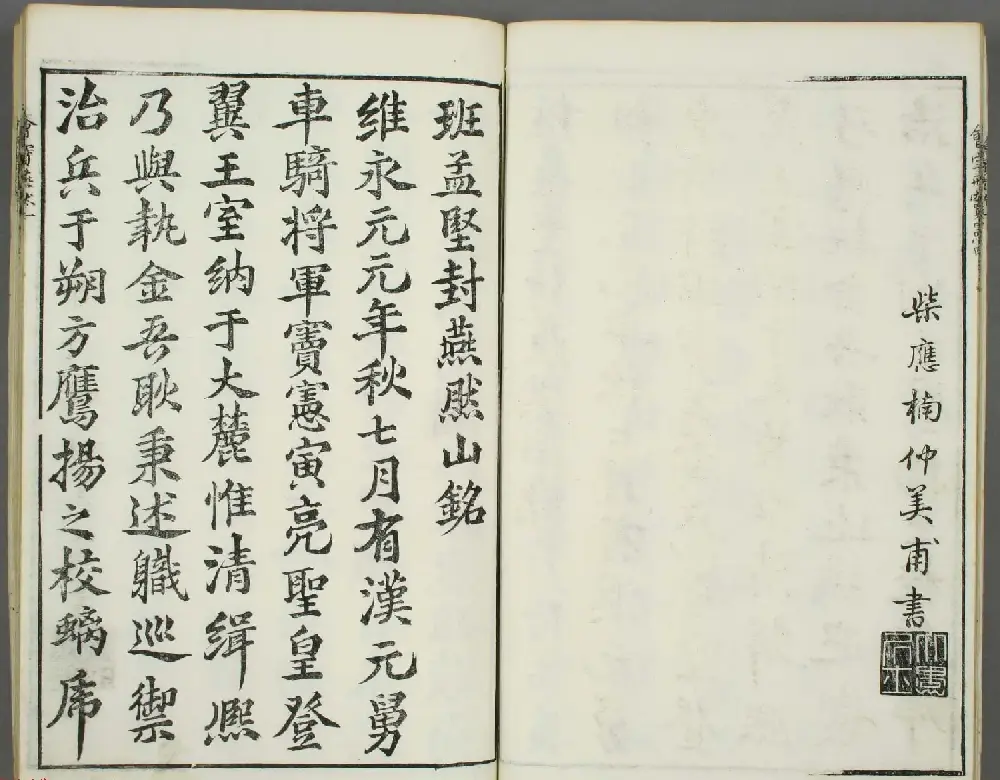 柴應楠仲美甫書
班孟堅封燕然山銘
維永元元年秋七月有漢元舅
車騎將軍竇憲寅亮聖皇登
翼王室納于大麓惟清緝熈
乃與執金吾耿秉述軄巡禦
治兵于朔方鷹揚之校螭虎